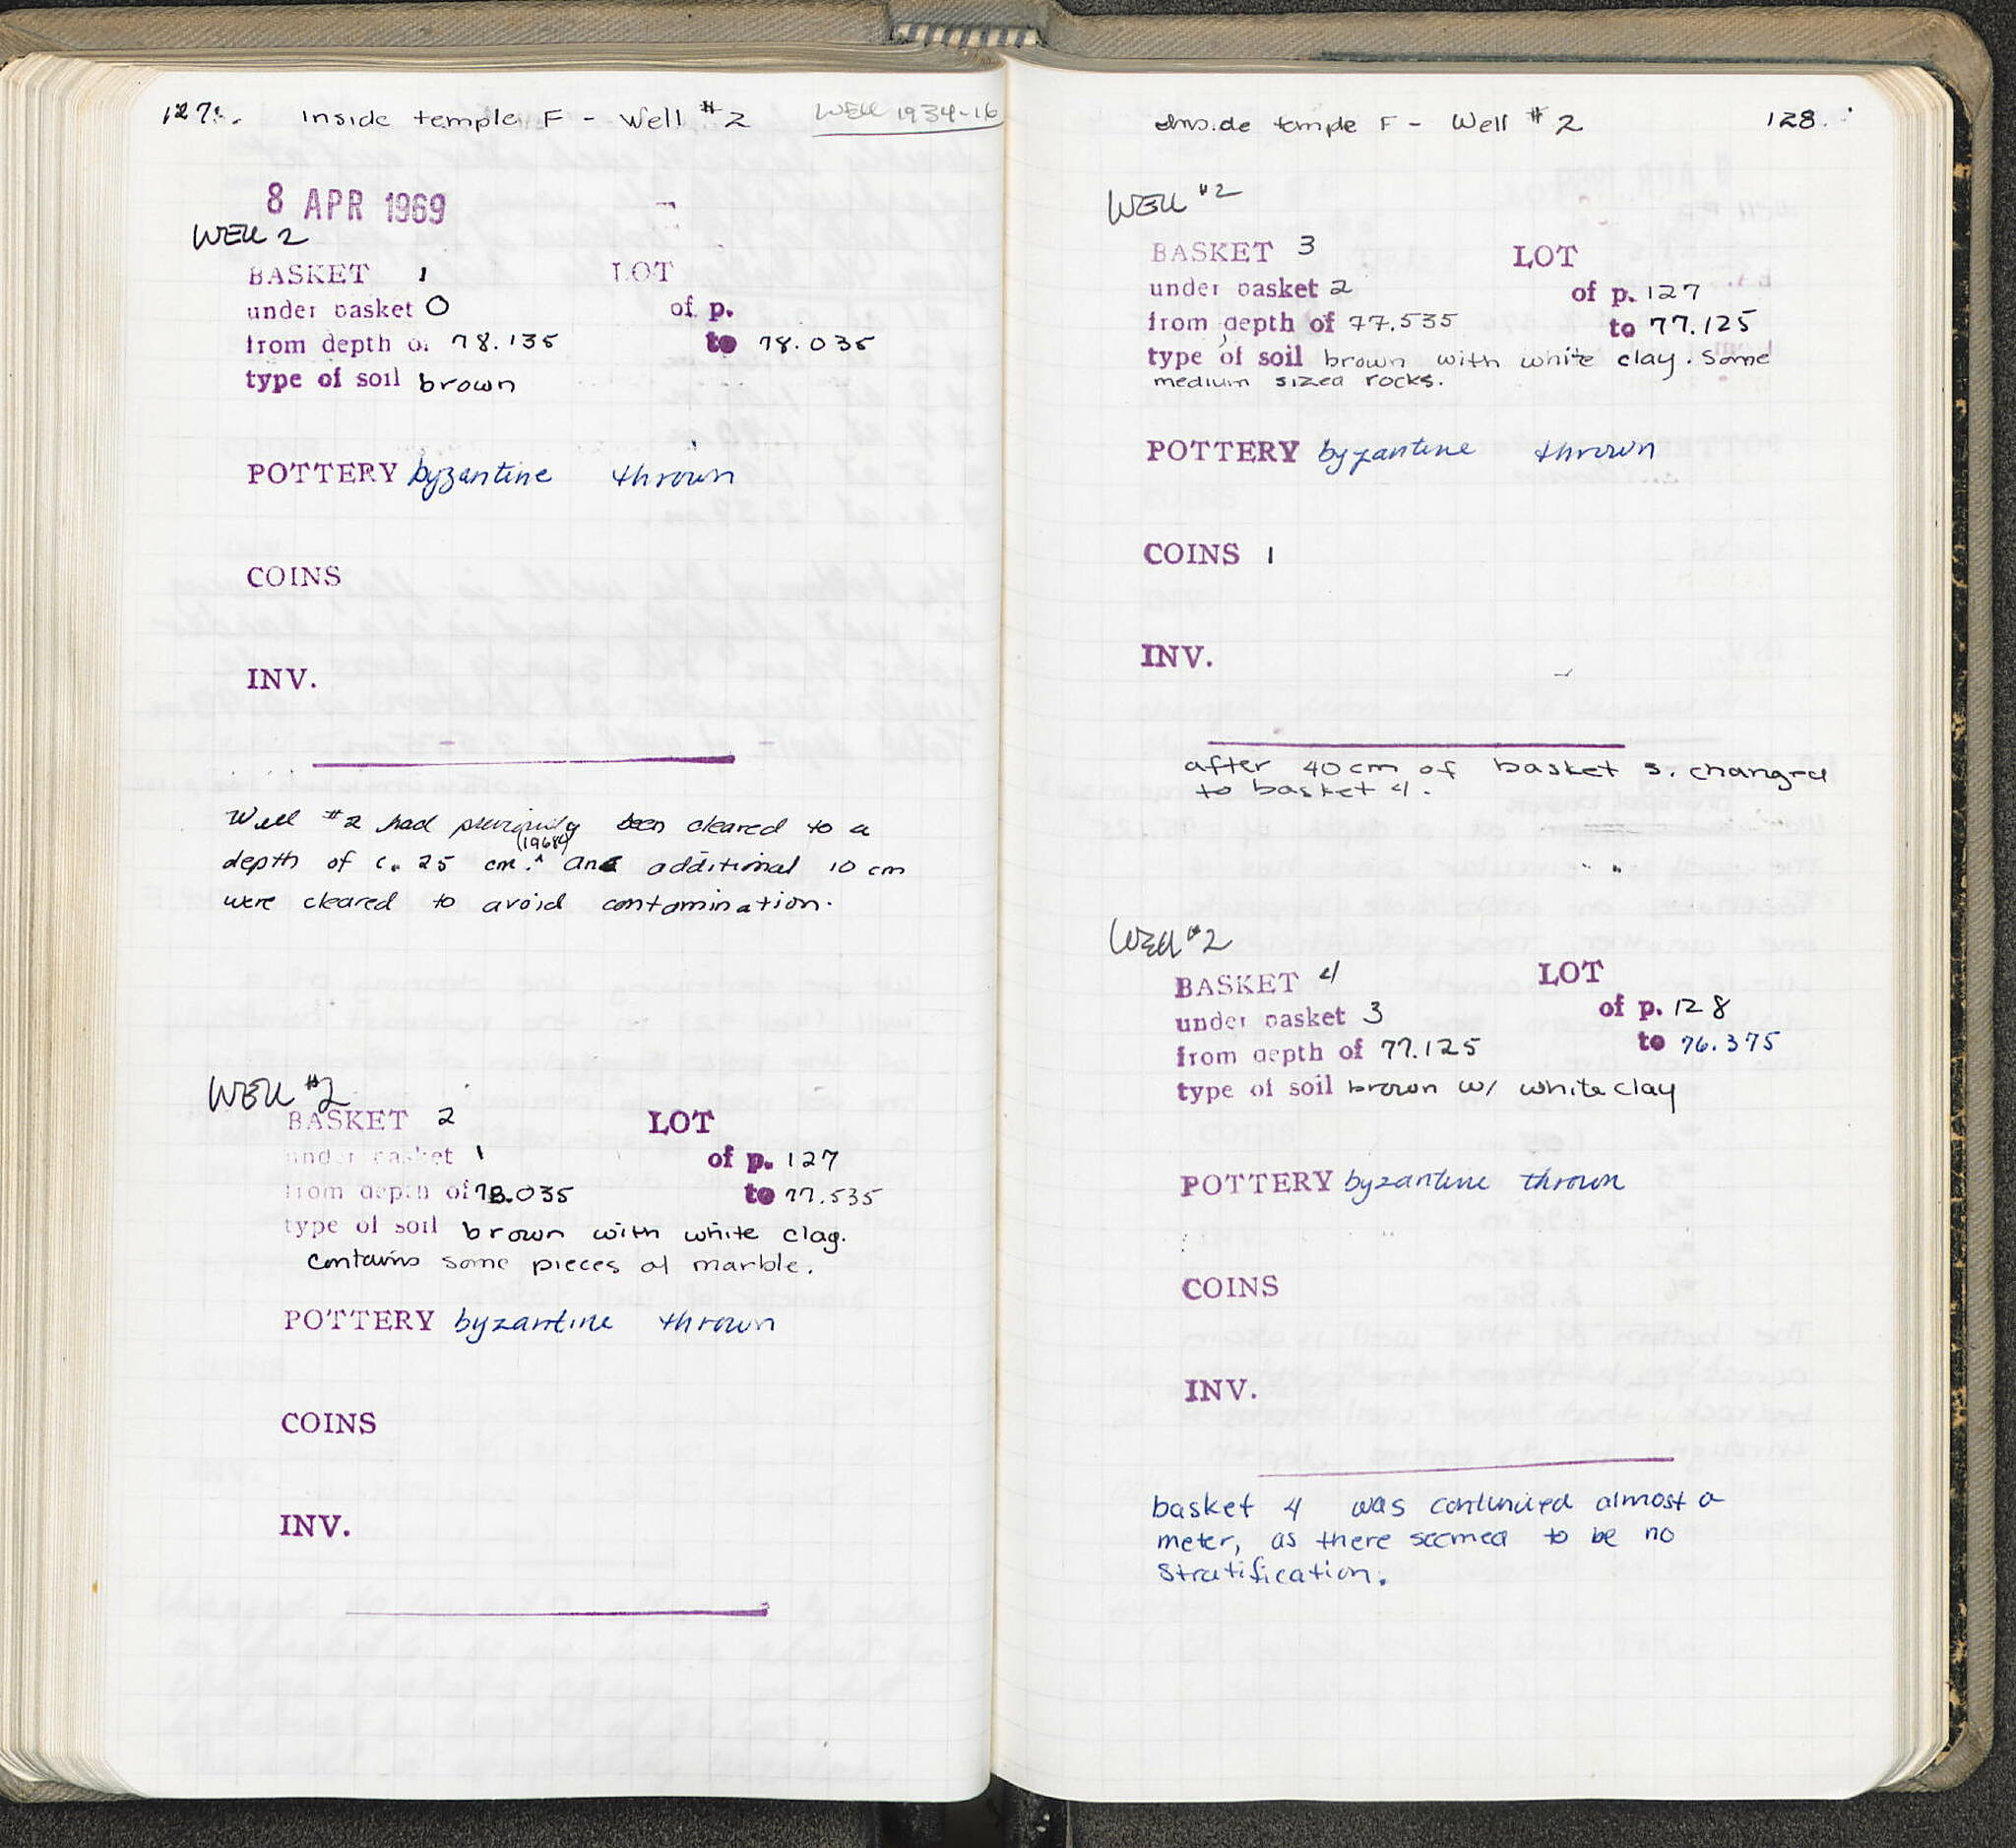 127. Inside temple F - Well #2 WELL 1934-16
8 APR 1969
WELL 2
BASKET 1 LOT
under basket 0 of p.
from depth of 78.135 to 78.035
type of soil brown
POTTERY byzantine thrown
COINS
INV.
Well #2 had previously been cleared to a
(1968)
depth of c. 25 cm.^ and additional 10 cm
were cleared to avoid contamination.
WELL #2
BASKET 2 LOT
under basket 1 of p. 127
from depth of 78.035 to 77.535
type of soil brown with white clay.
contains some pieces of marble.
POTTERY byzantine thrown
COINS
INV.
Inside temple F - Well #2 128.
WELL #2
BASKET 3 LOT
under basket 2 of p. 127
from depth of 77.535 to 77.125
type of soil brown with white clay. Some
medium sized rocks.
POTTERY byzantine thrown
COINS 1
INV.
after 40cm of basket 3. changed
to basket 4.
WELL #2
BASKET 4 LOT
under basket 3 of p. 128
from depth of 77.125 to 76.375
type of soil brown w/ white clay
POTTERY byzantine thrown
COINS
INV.
basket 4 was continued almost a
meter, as there seemed to be no
stratification.